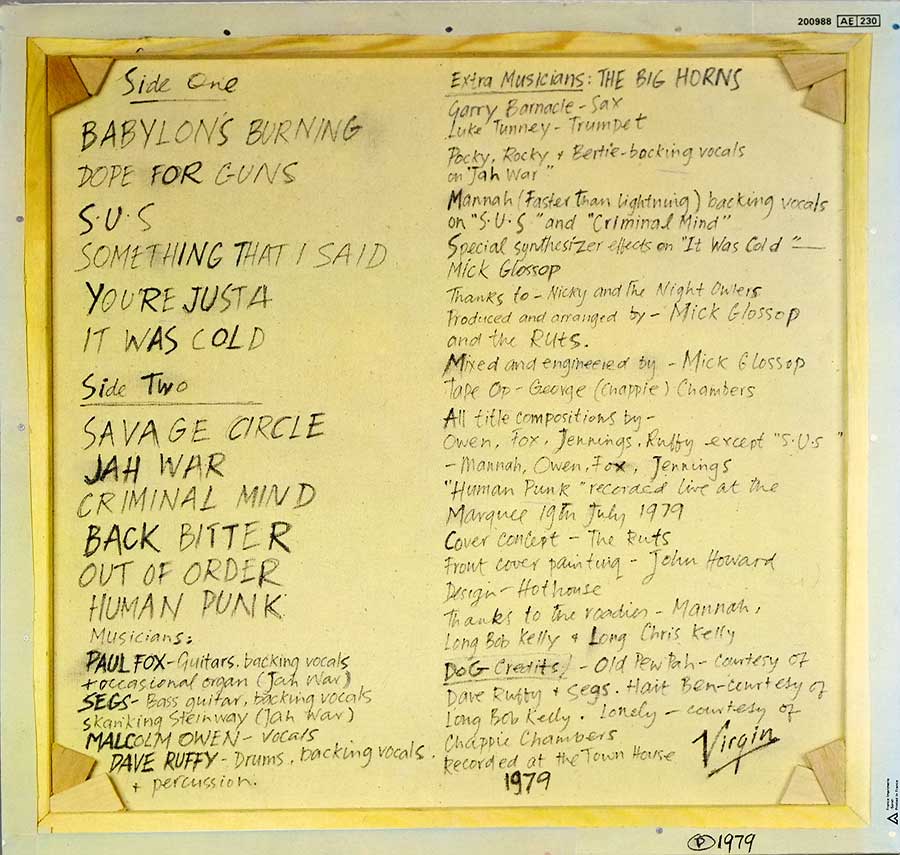 200988 AE 230
Side One
BABYLON'S BURNING
DOPE FOR GUNS
S·U·S
SOMETHING THAT I SAID
YOU'RE JUST A
IT WAS COLD
Side Two
SAVAGE CIRCLE
JAH WAR
CRIMINAL MIND
BACK BITTER
OUT OF ORDER
HUMAN PUNK
Musicians:
PAUL FOX - Guitars, backing vocals
+ occasional organ (Jah War)
SEGS - Bass guitar, backing vocals
skanking Steinway (Jah War)
MALCOLM OWEN - vocals
DAVE RUFFY - Drums, backing vocals.
+ percussion.
Extra Musicians: THE BIG HORNS
Garry Barnacle - Sax
Luke Tunney - Trumpet
Pocky, Rocky + Bertie - backing vocals
on "Jah War"
Mannah (Faster than lightning) backing vocals
on "S·U·S" and "Criminal Mind"
Special synthesizer effects on "It Was Cold" —
Mick Glossop
Thanks to - Nicky and The Night Owlers
Produced and arranged by - Mick Glossop
and the Ruts.
Mixed and engineered by - Mick Glossop
Tape Op - George (Chappie) Chambers
All title compositions by -
Owen, Fox, Jennings, Ruffy except "S·U·S"
- Mannah, Owen, Fox, Jennings
"Human Punk" recorded live at the
Marquee 19th July 1979
Cover concept - The Ruts
Front cover painting - John Howard
Design - Hothouse
Thanks to the roadies - Mannah,
Long Bob Kelly + Long Chris Kelly
DOG Credits) - Old Pew Pah - courtesy of
Dave Ruffy + Segs. Hait Ben - courtesy of
Long Bob Kelly. Lonely - courtesy of
Chappie Chambers
Recorded at the Town House
1979
Virgin
Ⓟ 1979